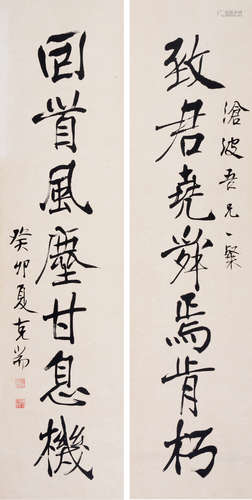 致君堯舜焉肯朽
滄波吾兄一粲
回首風塵甘息機
癸卯夏克耑